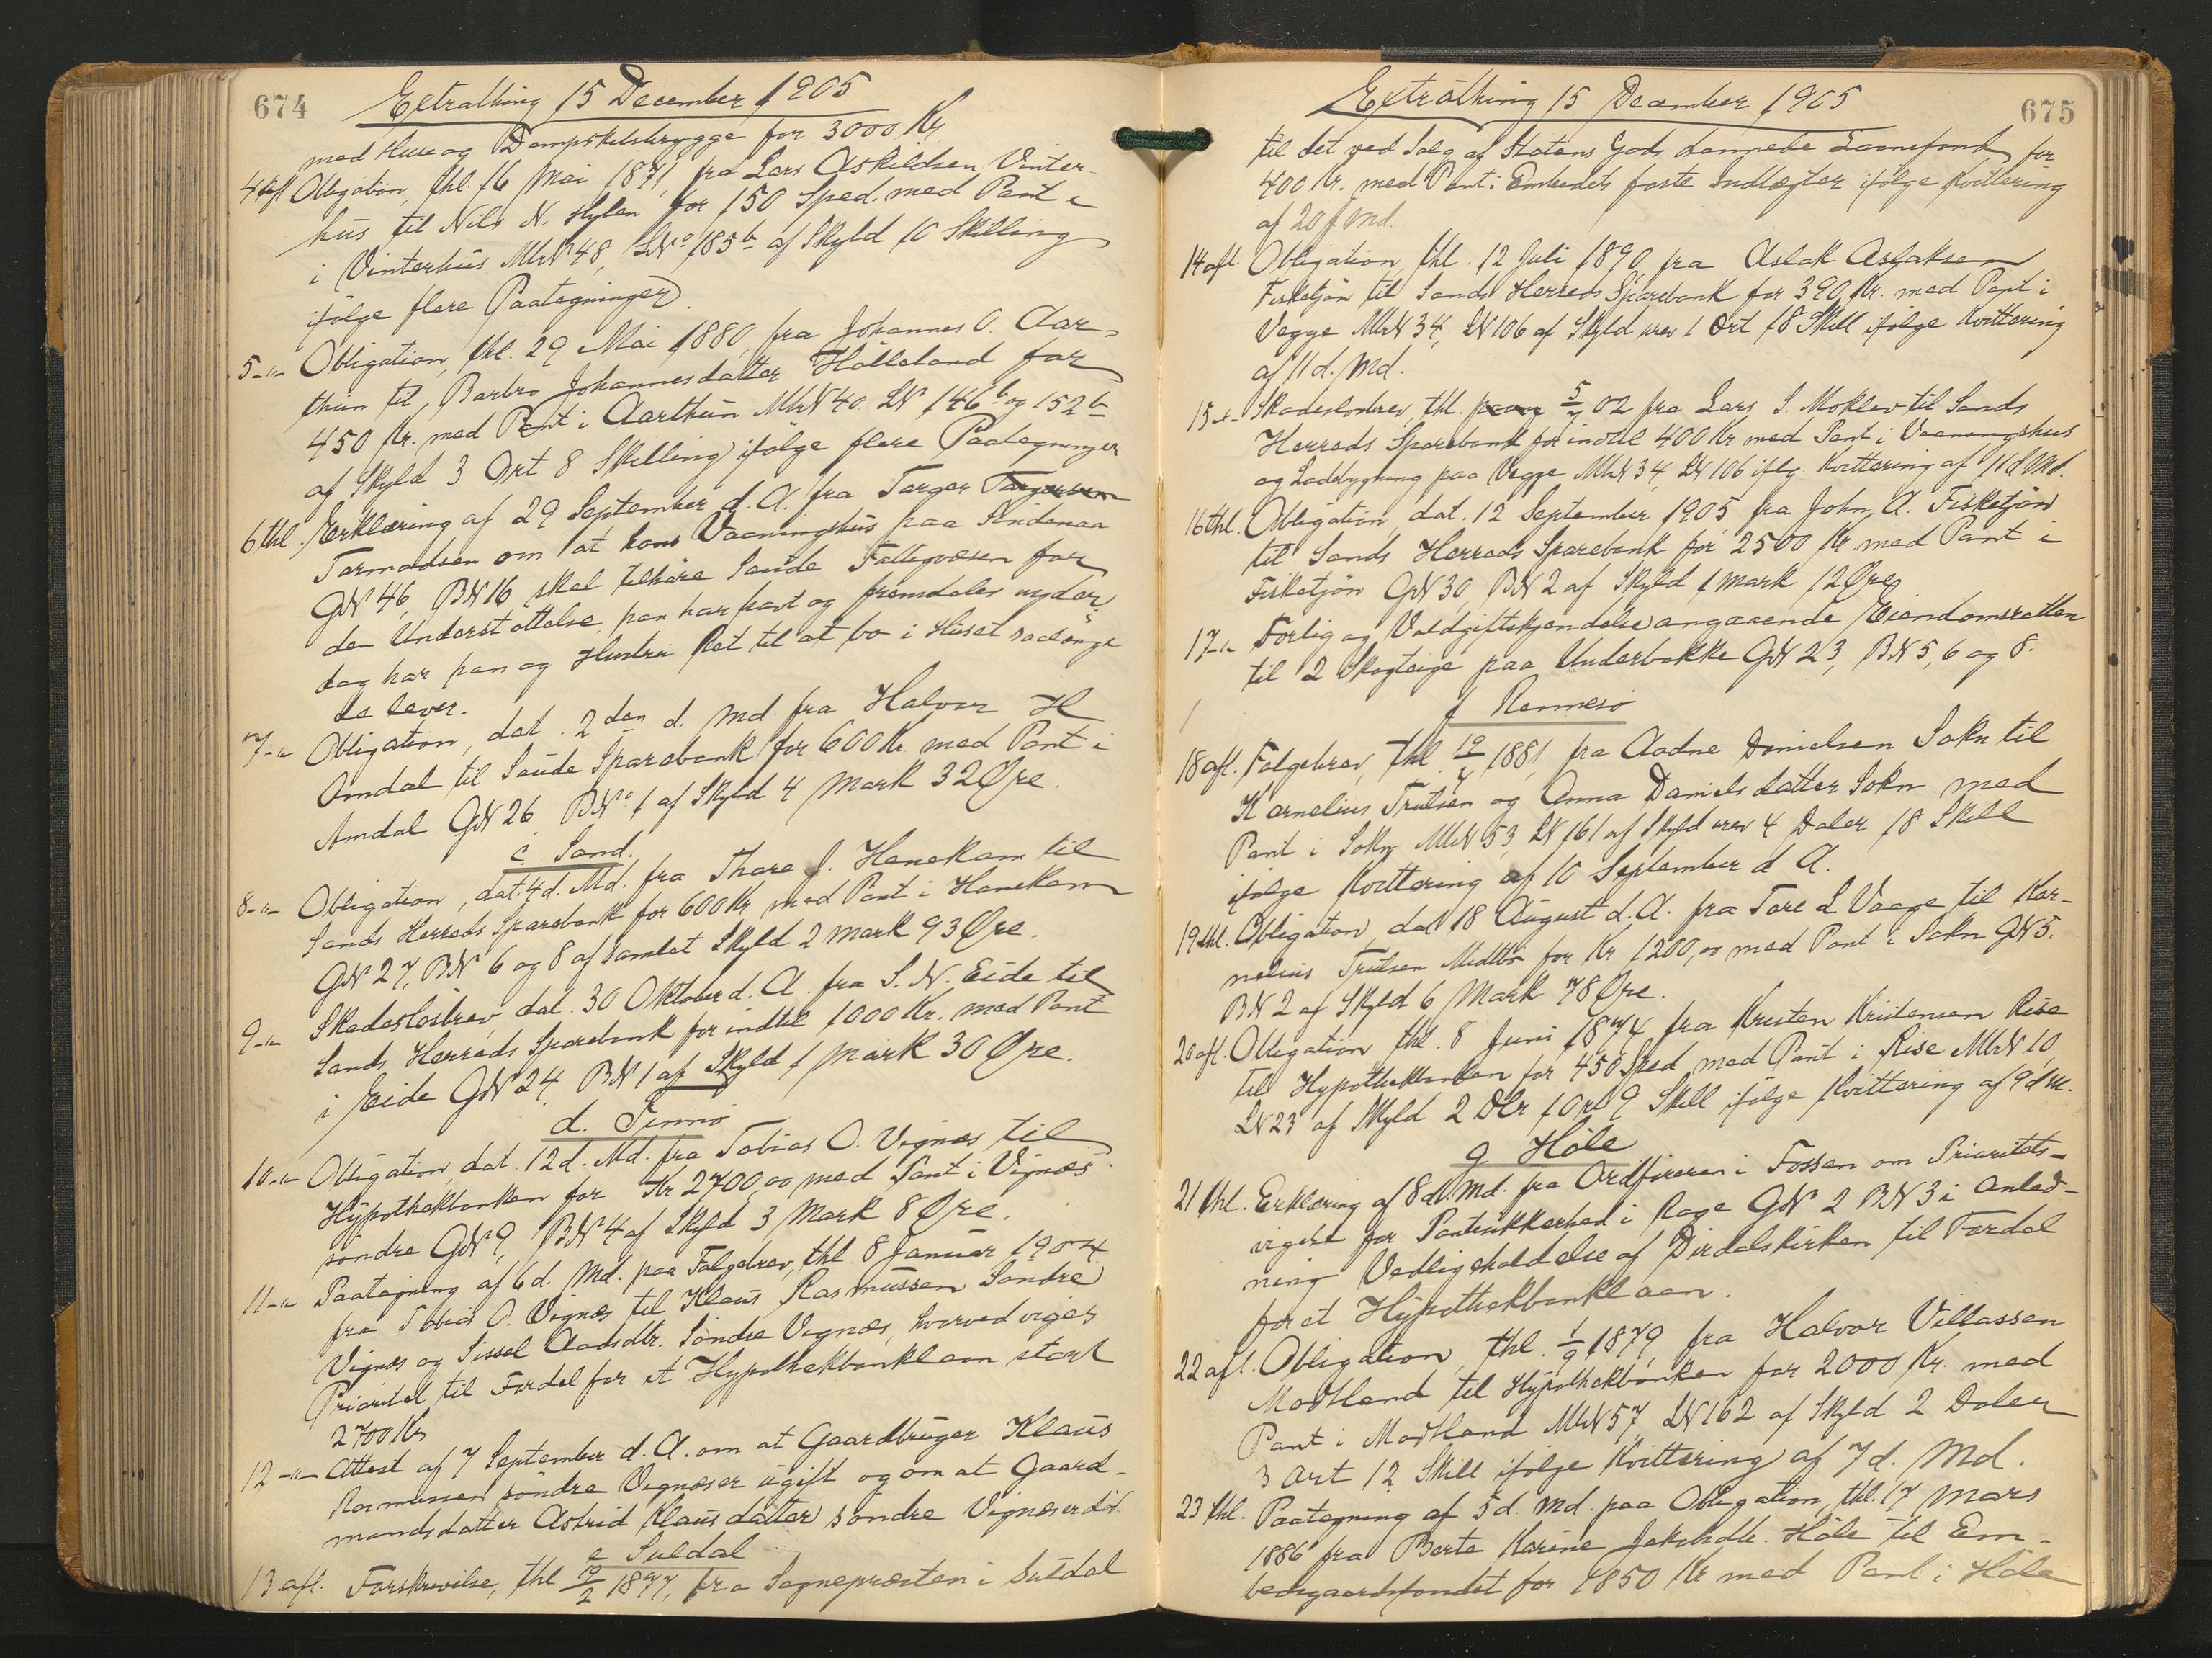 674
Extrathing 15 December 1905
med Huse og Dampskibsbrygge for 3000 Kr
4 afl Obligation, thl. 16 Mai 1871, fra Lars Askildsen Vinter-
hus til Nils N. Hylen for 150 Sped. med Pant
i Vinterhus MtrN 48, LNo 185b af Skyld 10 Skilling
ifølge flere Paategninger.
5-"- Obligation, thl. 29 Mai 1880, fra Johannes O. Aar-
thun til Barbro Johannesdatter Hølleland for
450 Kr. med Pant i Aarthun MtrN 40 LN 146b og 152b
af Skyld 3 Ort 8 Skilling ifølge flere Paategninger
6 thl. Erklæring af 29 September d. A. fra Torger Torgersen
Tormodsen om at hans Vaaningshus paa Søndenaa
GN 46, BN 16 skal tilhøre Saude Fattigvæsen for
den Understøttelse han har havt og fremdeles nyder,
dog har han og Hustru Ret til at bo i Huset saalænge
de lever.
7-"- Obligation, dat. 2den d. Md. fra Halvor H
Amdal til Saude Sparebank for 600 Kr. med Pant i
Amdal GN 26 BNo 1 af Skyld 4 Mark 32 Øre.
c. Sand.
8-"- Obligation, dat. 4 d. Md. fra Thore J. Hanekam til
Sands Herreds Sparebank for 600 Kr med Pant i Hanekam
GN 27, BN 6 og 8 af samlet Skyld 2 Mark 93 Øre.
9-"- Skadesløsbrev, dat. 30 Oktober d. A. fra S. N. Eide til
Sands Herreds Sparebank for indtil 1000 Kr. med Pant
i Eide GN 24, BN 1 af Skyld 1 Mark 30 Øre.
d. Finnø
10-"- Obligation, dat. 12 d. Md. fra Tobias O. Vignæs til
Hypothekbanken for Kr 2700,00 med Pant i Vignæs
søndre GN 9, BN 4 af Skyld 3 Mark 8 Øre.
11-"- Paategning af 6 d. Md. paa Følgebrev, thl 8 Januar 1904
fra Tobias O. Vignæs til Klaus Rasmussen Søndre
Vignæs og Sissel Aadsdtr. Søndre Vignæs, hvorved viges
Prioritet til Fordel for et Hypothekbanklaan stort
2700 Kr
12-"- Attest af 7 September d. A. om at Gaardbruger Klaus
Rasmussen søndre Vignæs er ugift og om at Gaard-
mandsdatter Astrid Klausdatter søndre Vignæs er død.
e Suldal
13 afl. Forskrivelse, thl 12/2 1877, fra Sognepræsten i Suldal
675
Extrathing 15 December 1905
til det ved Salg af Statens Gods dannede Laanefond for
400 Kr. med Pant i Embedets faste Indtægter ifølge Kvittering
af 20 f Md.
14 afl. Obligation thl. 12 Juli 1890, fra Aslak Aslaksen
Fisketjøn til Sands Herreds Sparebank for 390 Kr. med Pant i
Vegge MtrN 34, LN 106 af Skyld urev 1 Ort 18 Skill ifølge Kvittering
af 11 d. Md.
15-"- Skadesløsbrev, thl. 5/7 02 fra Lars S. Moklev til Sands
Herreds Sparebank for indtil 400 Kr med Pant i Vaaningshus
og Ladebygning paa Vegge MtrN 34, LN 106 iflg. Kvittering af 11 d Md.
16 thl. Obligation, dat. 12 September 1905 fra John A. Fisketjøn
til Sands Herreds Sparebank for 2500 Kr med Pant i
Fisketjøn GN 30, BN 2 af Skyld 1 Mark 12 Øre
17-"- Forlig og Voldgiftskjendelse angaaende Eiendomsretten
til 2 Skogteige paa Underbakke GN 23, BN 5, 6 og 8.
f Rennesø
18 afl. Følgebrev, thl 12/7 1881, fra Aadne Danielsen Sokn til
Kornelius Trulsen og Anna Danielsdatter Sokn med
Pant i Sokn MtrN 53, LN 161 af Skyld urev 4 Daler 18 Skill
ifølge Kvittering af 10 September d A.
19 thl. Obligation, dat 18 August d. A. fra Tore L Vaage til Kor-
nelius Trulsen Midtbø for Kr 1200,00 med Pant i Sokn GN 5.
BN 2 af Skyld 6 Mark 78 Øre.
20 afl. Obligation thl. 8 Juni 1874 fra Kristen Kristensen Rise
til Hypothekbanken for 450 Sped med Pant i Rise MtrN 10
LN 23 af Skyld 2 Dlr 1 Ort 9 Skill ifølge Kvittering af 9 d M.
g Høle
21 thl. Erklæring af 8 d. Md. fra Ordføreren i Fossan om Prioritets-
vigelse for Pantsikkerhed i Rage GN 2 BN 3 i Anled-
ning Vedligeholdelse af Dirdalskirken til Fordel
for et Hypothekbanklaan.
22 afl. Obligation, thl. 1/9 1879, fra Halvor Villassen
Modtland til Hypothekbanken for 2000 Kr. med
Pant i Modtland MtrN 57, LN 162 af Skyld 2 Daler
3 Ort 12 Skill ifølge Kvittering af 7 d. Md.
23 thl. Paategning af 5 d. Md. paa Obligation, thl. 17 Mars
1886 fra Berte Karine Jakobsdtr. Høle til Em-
bedsgaardsfondet for 1850 Kr med Pant i Høle